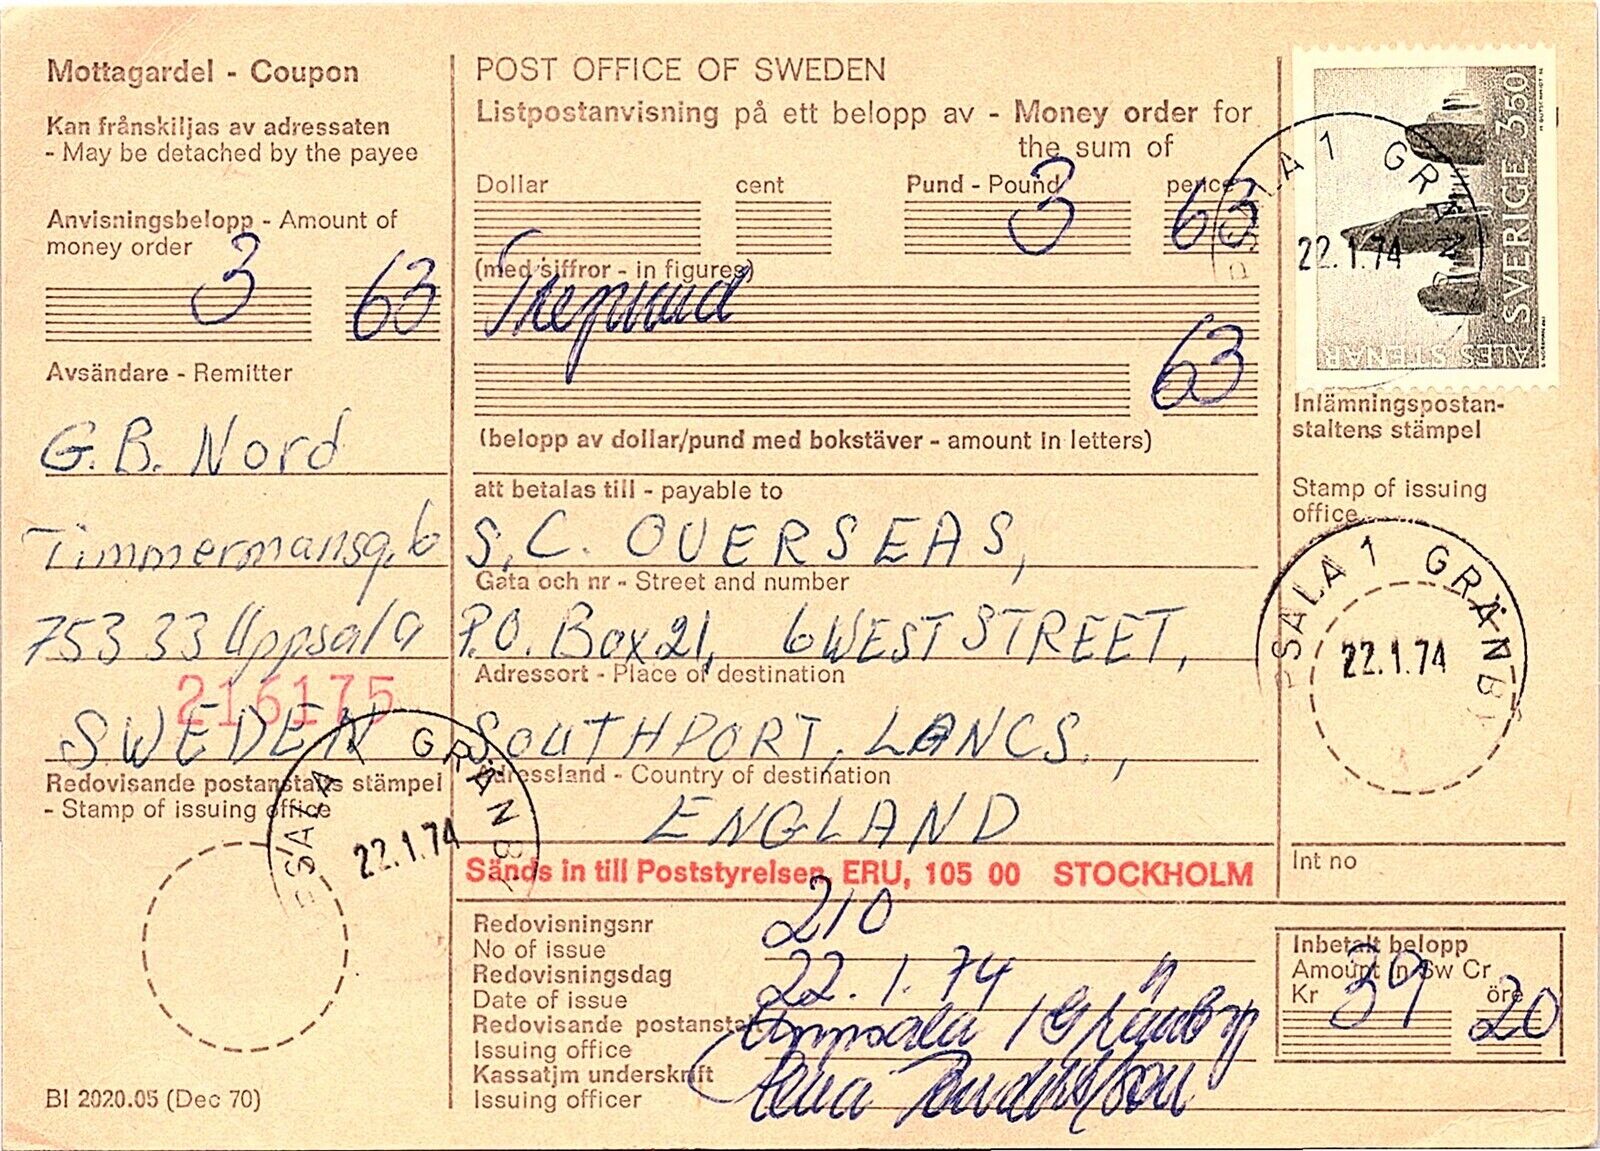 Mottagardel - Coupon
Kan frånskiljas av adressaten
- May be detached by the payee
Anvisningsbelopp - Amount of
money order
3 63
Avsändare - Remitter
G. B. Nord
Timmermansg. 6
753 33 Uppsala
216175
SWEDEN
Redovisande postanstalts stämpel
- Stamp of issuing office
PSALA GRÄNB
22.1.74
BI 2020.05 (Dec 70)
POST OFFICE OF SWEDEN
Listpostanvisning på ett belopp av - Money order for
the sum of
Dollar cent Pund - Pound pence
3 63
(med siffror - in figures)
Trepund
63
(belopp av dollar/pund med bokstäver - amount in letters)
att betalas till - payable to
S.C. OVERSEAS,
Gata och nr - Street and number
P.O. Box 21, 6 WEST STREET,
Adressort - Place of destination
SOUTHPORT, LANCS.,
Adressland - Country of destination
ENGLAND
Sänds in till Poststyrelsen, ERU, 105 00 STOCKHOLM
Redovisningsnr
No of issue
210
Redovisningsdag
Date of issue
22.1.74
Redovisande postanstalt
Issuing office
Uppsala 1 Gränby
Kassatjm underskrift
Issuing officer
SVERIGE 350
ALES STENAR
PSALA 1 GRÄNB
22.1.74
Inlämningspostan-
staltens stämpel
Stamp of issuing
office
PSALA 1 GRÄNBY
22.1.74
Int no
Inbetalt belopp
Amount in Sw Cr
Kr öre
39 20